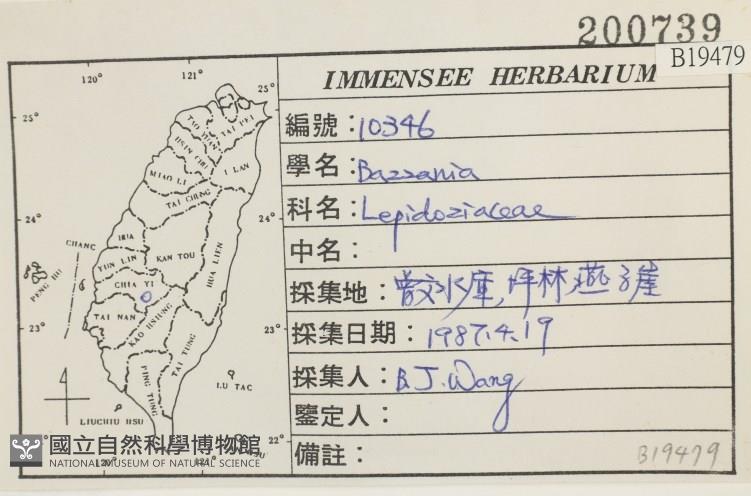 200739
B19479
IMMENSEE HERBARIUM
編號：10346
學名：Bazzania
科名：Lepidoziaceae
中名：
採集地：曾文水庫，坪林燕子崖
採集日期：1987.4.19
採集人：B.J.Wang
鑒定人：
備註：
B19479
120° 121°
25° 25°
TAI PEI
TAO YUAN
HSIN CHU
I LAN
MIAO LI
TAI CHUNG
24° 24°
CHANG HUA
HUA LIEN
YUN LIN
KAN TOU
PENG HU
CHIA YI
TAI NAN
KAO HSIUNG
23° 23°
TAI TUNG
PING TUNG
LU TAC
LIUCHIU HSU
22°
120° 121°
國立自然科學博物館
NATIONAL MUSEUM OF NATURAL SCIENCE